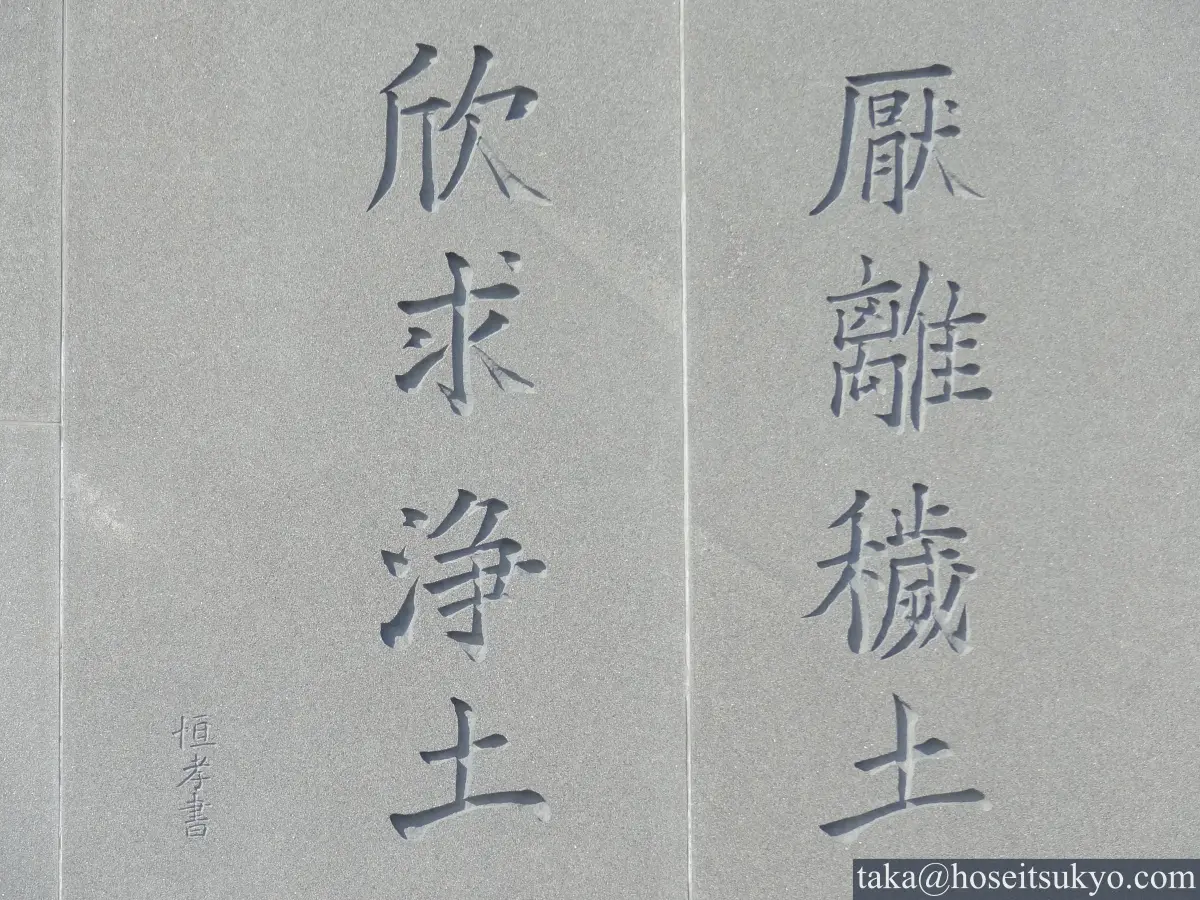 厭離穢土
欣求浄土
恒孝書
taka@hoseitsukyo.com